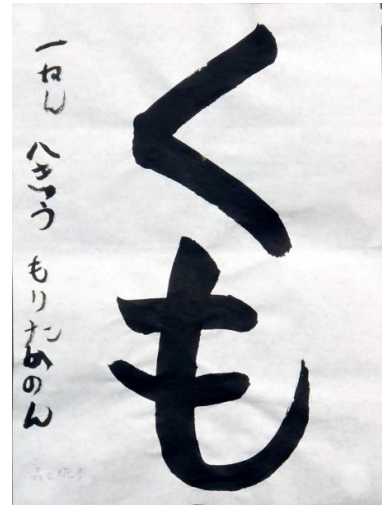 くも
一ねん 八きゅう もりたあのん